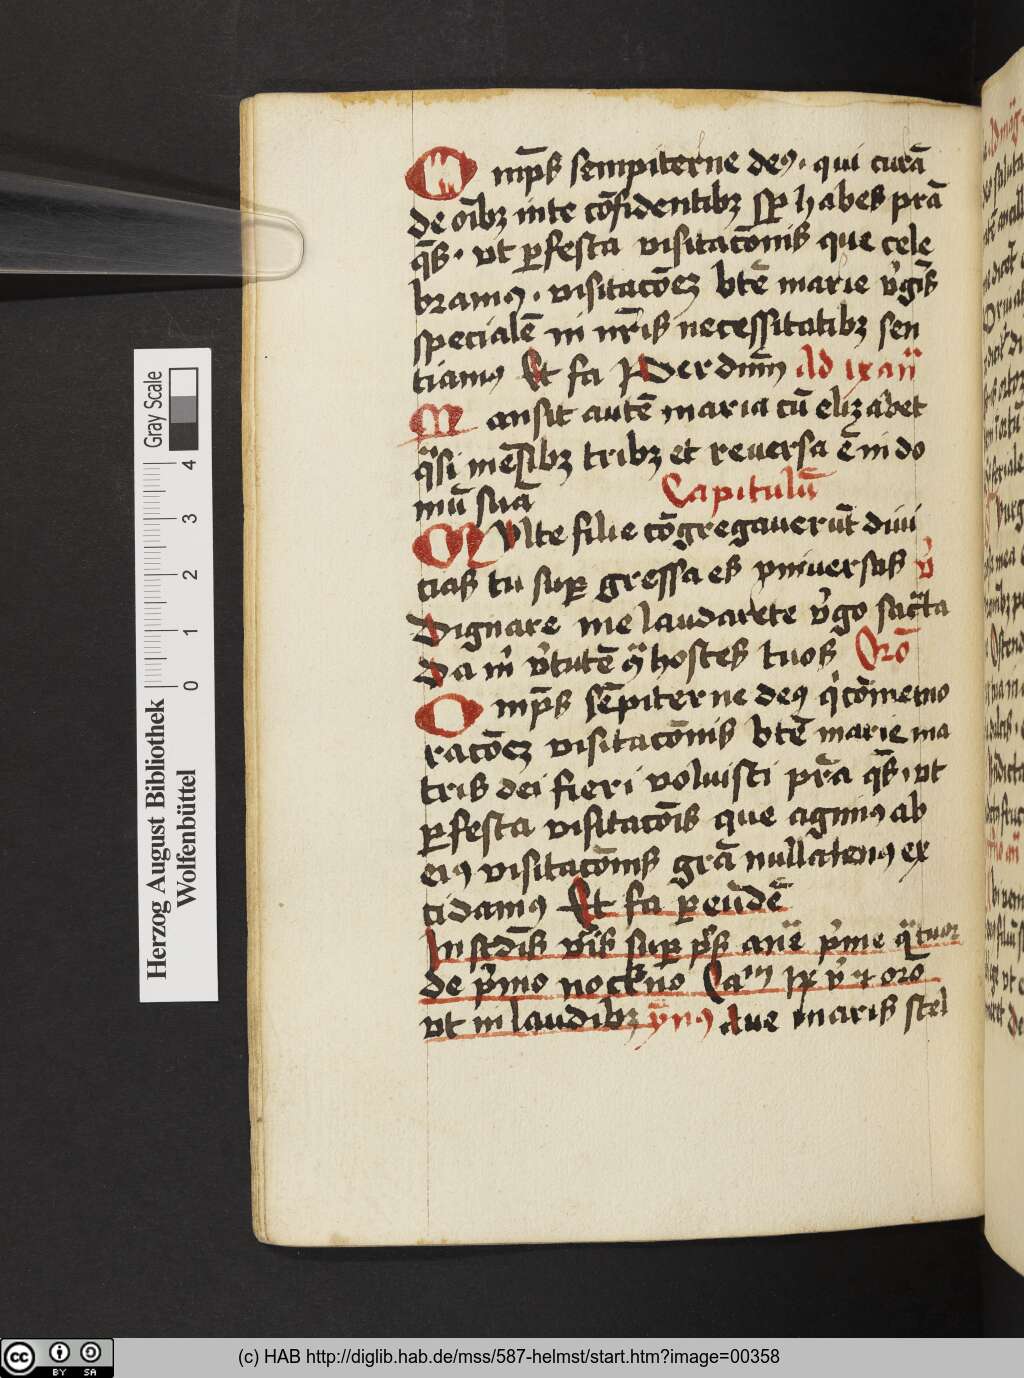 Omp̄s sempiterne deꝰ. qui curā
de oībꝫ in te cōfidentibꝫ sp̄ habes prā
q̄s. vt ꝑ festa visitacōnis que cele
bramꝰ. visitacōeꝫ btē marie v̓gīs
specialē in nr̄is necessitatibꝫ sen
tiamꝰ Et fa Per dnm̄ Ad
Mansit autē maria cū elizabet
qͣsi mēsibꝫ tribꝫ et reuersa ē in do
mū suā Capitulū
MVlte filie cōgregauerūt diui
cias tu suꝑ gressa es vniuersas v̓
Dignare me laudare te v̓go sacͣta
Da m̓ v̓tutē hostes tuos Orō
Omp̄s sēpiterne deꝰ
racōeꝫ visitacōnis btē marie ma
tris dei fieri voluisti prā q̄s. vt
ꝑ festa visitacōis que agimꝰ ab
eiꝰ visitacōnis grā nullatenꝰ ex
cidamꝰ Et fa ꝑ eundē
In scdīs v̓is suꝑ p̄s anē p̓me qͣtuor
de p̓mo noct̓no Capm̄ v̓ et oro
vt in laudibꝫ ynꝰ Aue maris stel
Gray Scale
4
3
2
1
0
Herzog August Bibliothek
Wolfenbüttel
cc BY SA
(c) HAB http://diglib.hab.de/mss/587-helmst/start.htm?image=00358